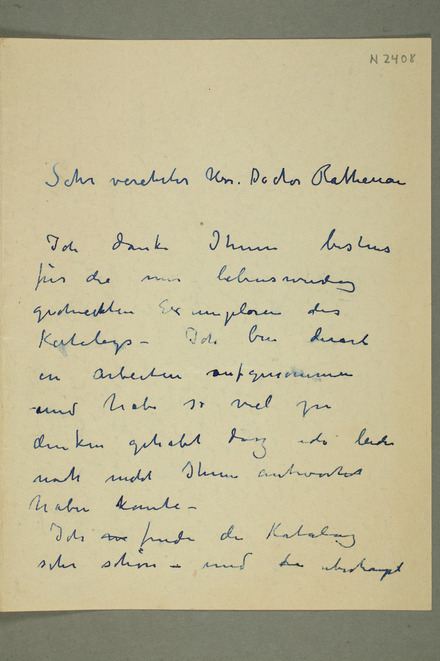 N 2408
Sehr verehrter Herr. Doctor Rathenau
Ich danke Ihnen bestens
für die mir liebenswürdig
geschickten Exemplaren des
Katalogs – Ich bin derart
in arbeiten aufgenommen
und habe so viel zu
denken gehabt dass ich leider
noch nicht Ihnen antworten
haben konnte –
Ich finde die Katalog
sehr schön – und die überhaupt